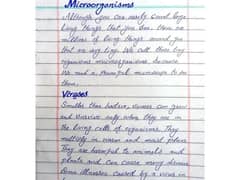 Microorganisms
Although you can easily count large
living things that you see. there are
millions of living things around you
that we say tiny. We call these tiny
organisms microorganisms because
we need a powerful microscope to see
them.
Viruses
Smaller than bacteria, viruses can grow
and survive only when they are in
the living cells of organisms. They
multiply in warm and moist places
They are harmful to animals and
plants and can cause many diseases
Some illnesses caused by a virus in